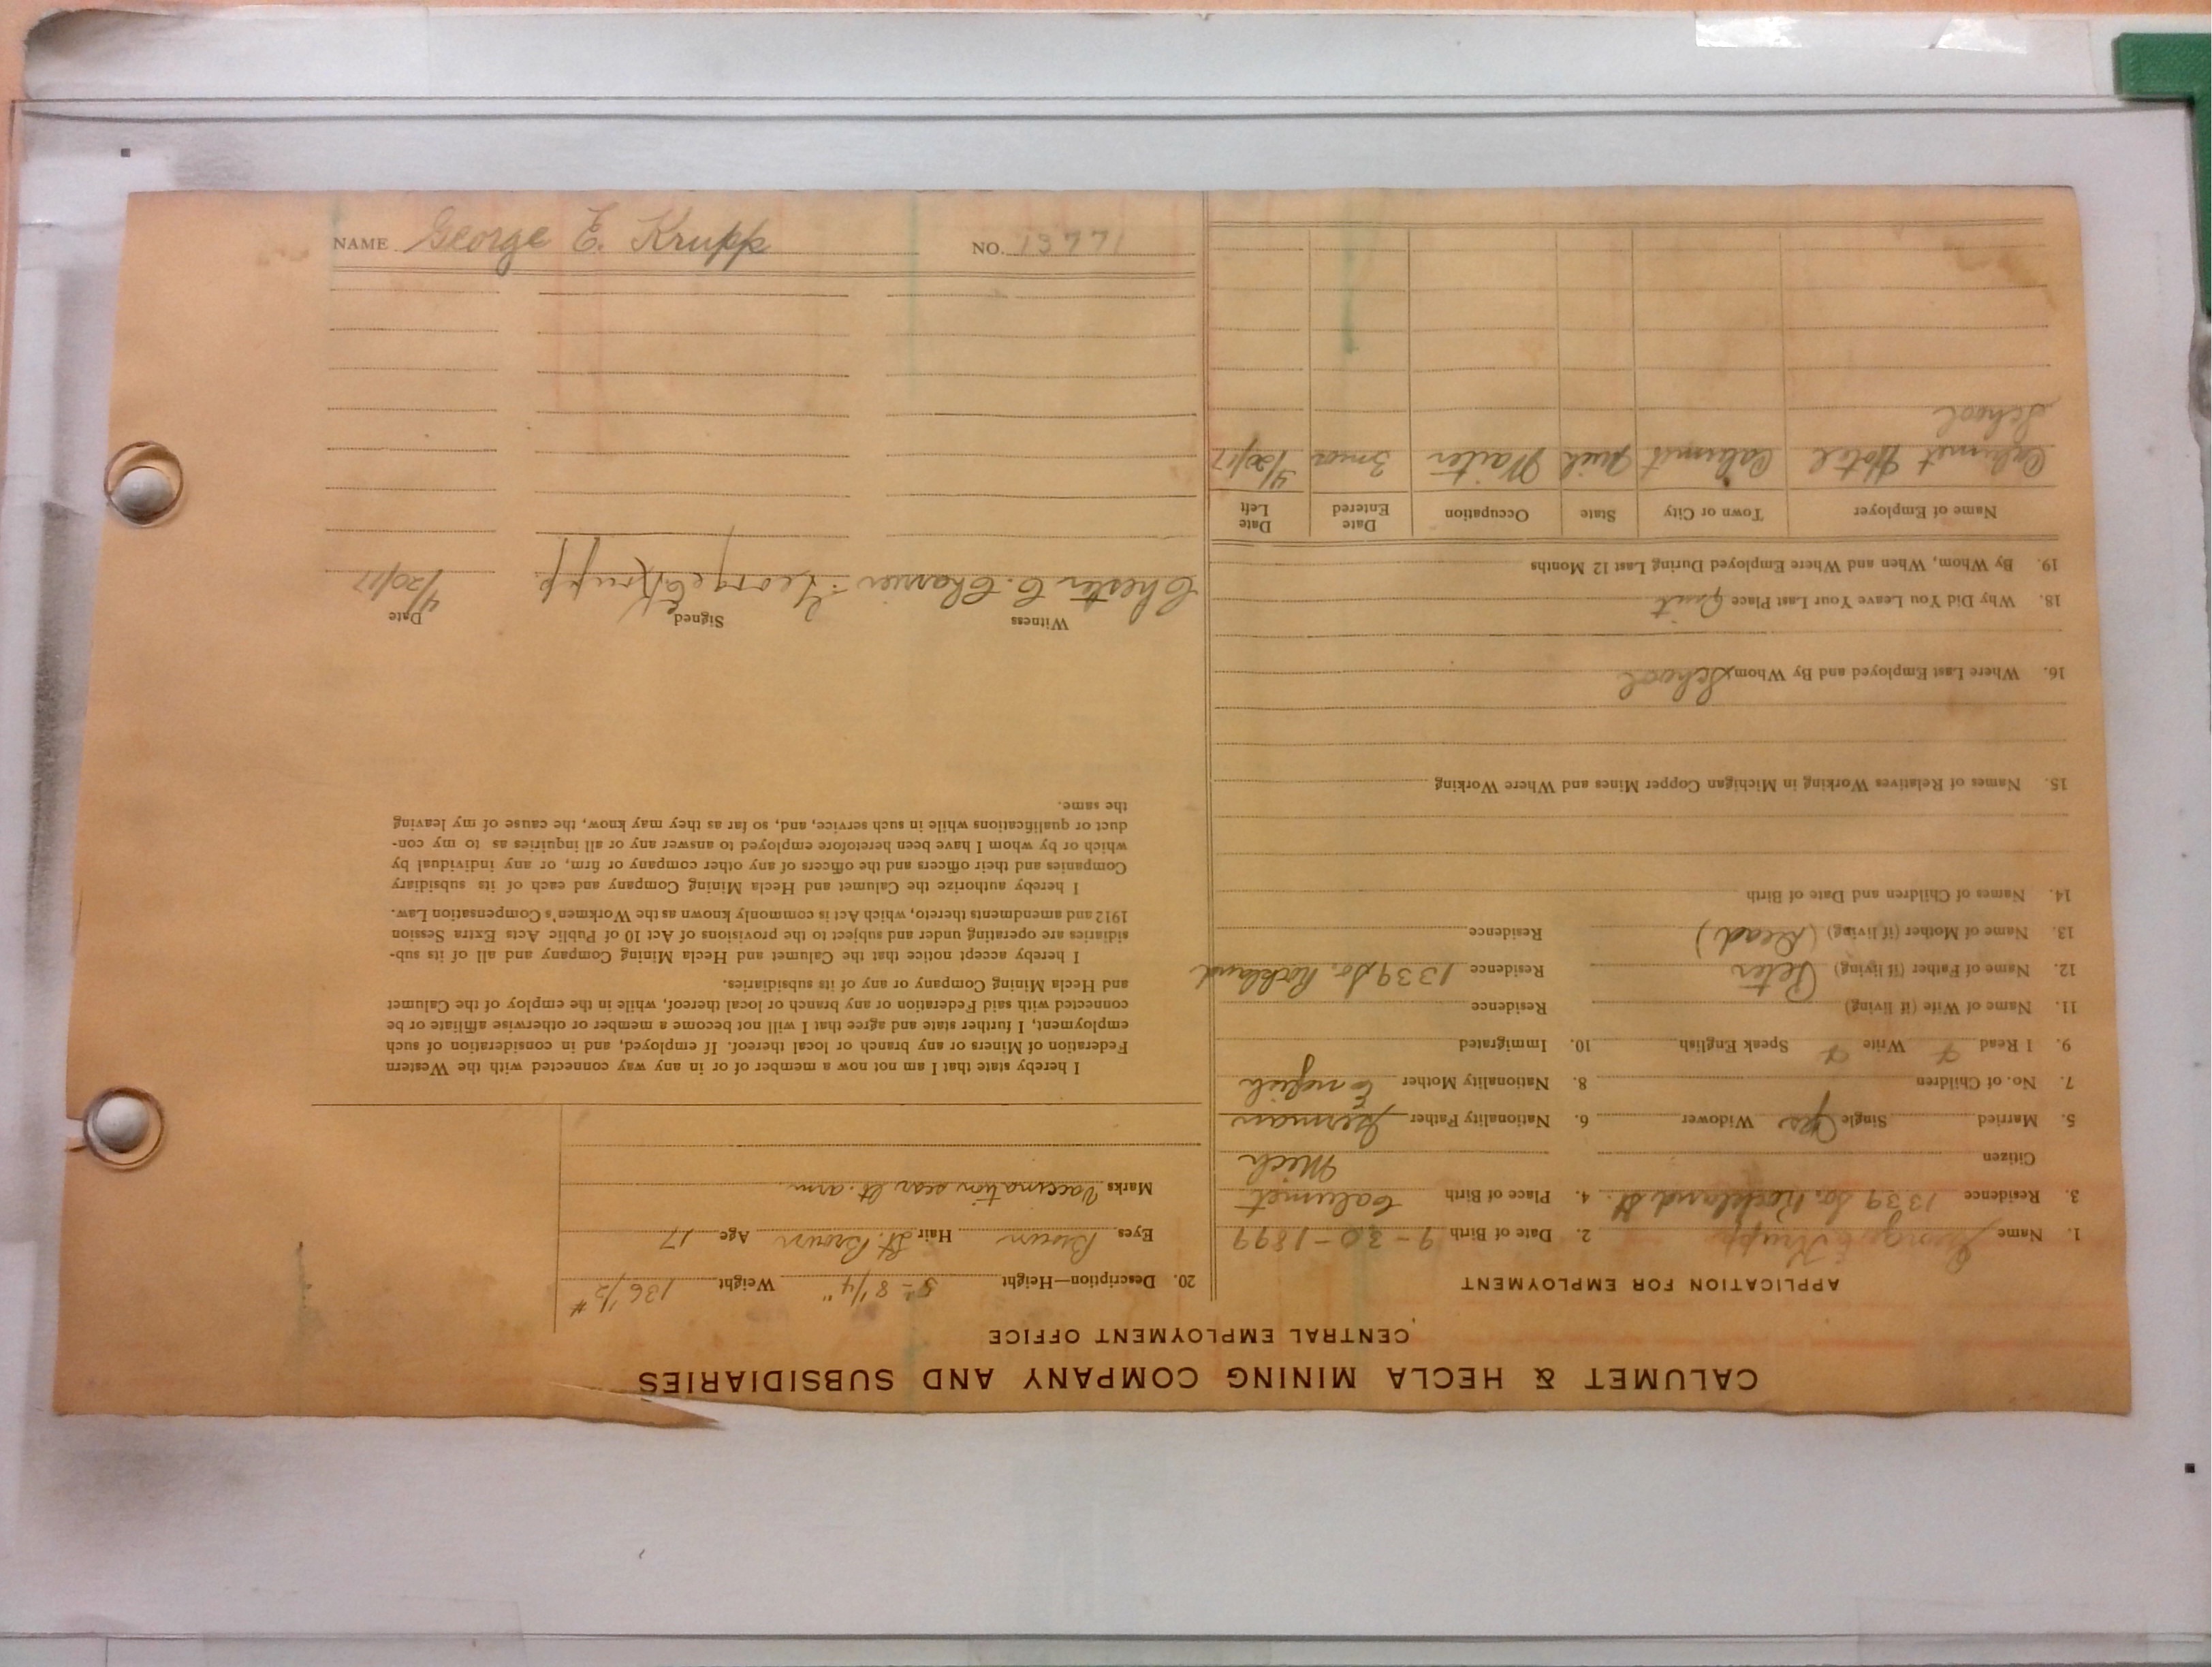 CALUMET & HECLA MINING COMPANY AND SUBSIDIARIES
CENTRAL EMPLOYMENT OFFICE
APPLICATION FOR EMPLOYMENT
1. Name George E Krupp 2. Date of Birth 9-30-1899
3. Residence 1339 So. Rockland St. 4. Place of Birth Calumet
Citizen Mich
5. Married Single Yes Widower 6. Nationality Father German
7. No. of Children 8. Nationality Mother English
9. I Read Write Speak English 10. Immigrated
11. Name of Wife (if living) Residence
12. Name of Father (if living) Peter Residence 1339 So. Rockland
13. Name of Mother (if living) (Dead) Residence
14. Names of Children and Date of Birth
15. Names of Relatives Working in Michigan Copper Mines and Where Working
16. Where Last Employed and By Whom School
18. Why Did You Leave Your Last Place Quit
19. By Whom, When and Where Employed During Last 12 Months
Name of Employer Town or City State Occupation Date Entered Date Left
Calumet Hotel Calumet Mich Waiter 3 mos 4/20/17
School
20. Description—Height 5'-8 1/4" Weight 136 1/2 #
Eyes Brown Hair Lt. Brown Age 17
Marks Vaccination scar lt. arm.
I hereby state that I am not now a member of or in any way connected with the Western
Federation of Miners or any branch or local thereof. If employed, and in consideration of such
employment, I further state and agree that I will not become a member or otherwise affiliate or be
connected with said Federation or any branch or local thereof, while in the employ of the Calumet
and Hecla Mining Company or any of its subsidiaries.
I hereby accept notice that the Calumet and Hecla Mining Company and all of its sub-
sidiaries are operating under and subject to the provisions of Act 10 of Public Acts Extra Session
1912 and amendments thereto, which Act is commonly known as the Workmen's Compensation Law.
I hereby authorize the Calumet and Hecla Mining Company and each of its subsidiary
Companies and their officers and the officers of any other company or firm, or any individual by
which or by whom I have been heretofore employed to answer any or all inquiries as to my con-
duct or qualifications while in such service, and, so far as they may know, the cause of my leaving
the same.
Witness Signed Date
Chester C. George E Krupp. 4/20/17
NAME George E. Krupp NO. 13771